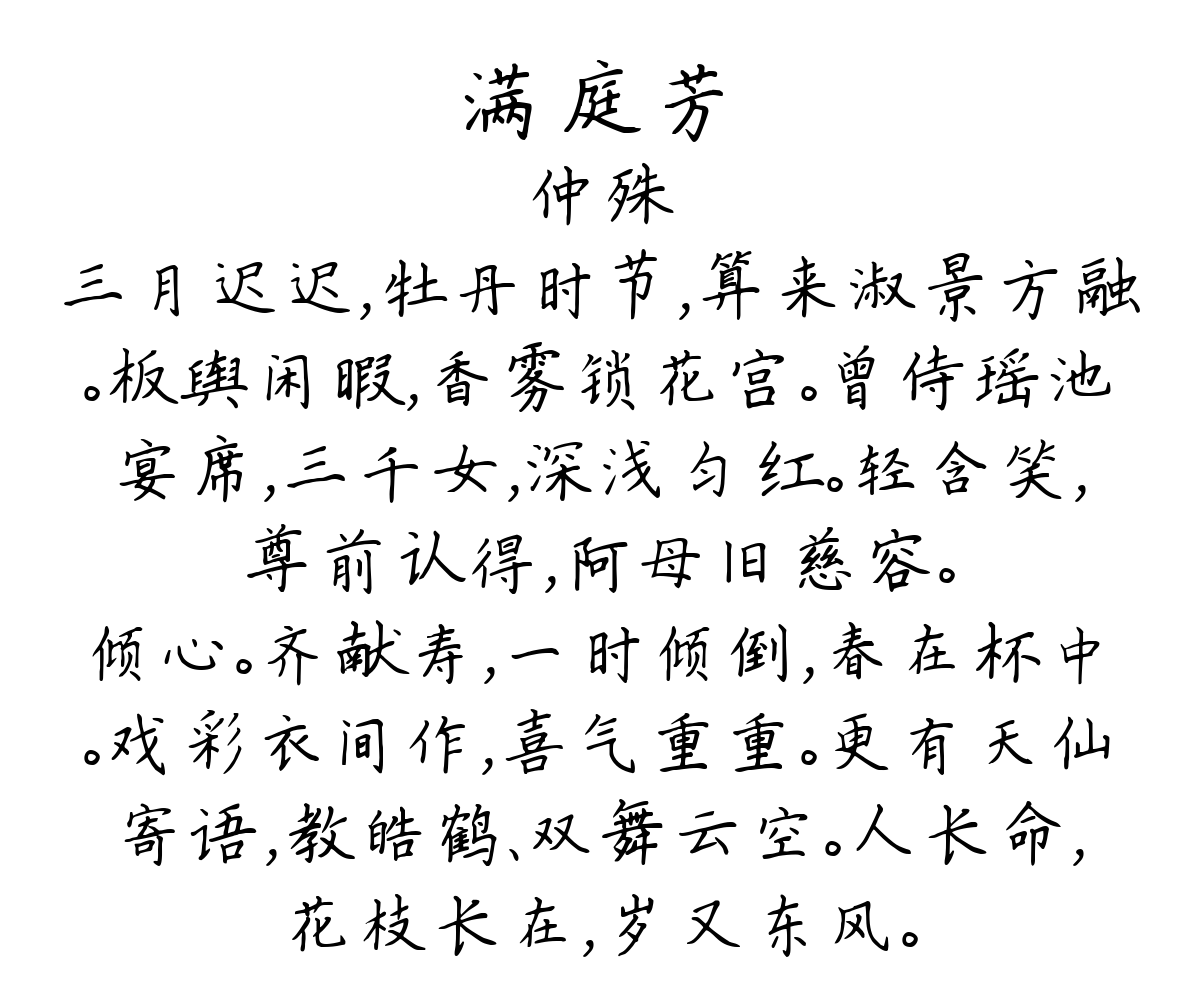 满庭芳
仲殊
三月迟迟,牡丹时节,算来淑景方融
。板舆闲暇,香雾锁花宫。曾侍瑶池
宴席,三千女,深浅匀红。轻含笑,
尊前认得,阿母旧慈容。
倾心。齐献寿,一时倾倒,春在杯中
。戏彩衣间作,喜气重重。更有天仙
寄语,教皓鹤、双舞云空。人长命,
花枝长在,岁又东风。